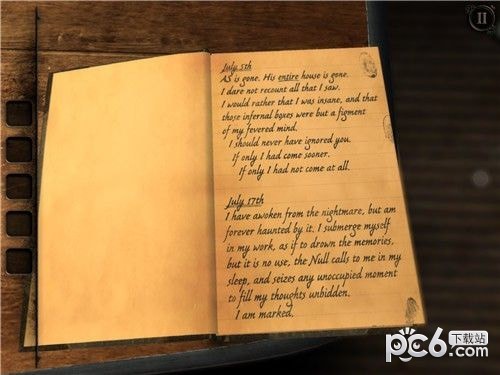 July 5th
AS is gone. His entire house is gone.
I dare not recount all that I saw.
I would rather that I was insane, and that
those infernal boxes were but a figment
of my fevered mind.
I should never have ignored you.
If only I had come sooner.
If only I had not come at all.
July 17th
I have awoken from the nightmare, but am
forever haunted by it. I submerge myself
in my work, as if to drown the memories,
but it is no use, the Null calls to me in my
sleep, and seizes any unoccupied moment
to fill my thoughts unbidden.
I am marked.
pc6下载站
.com